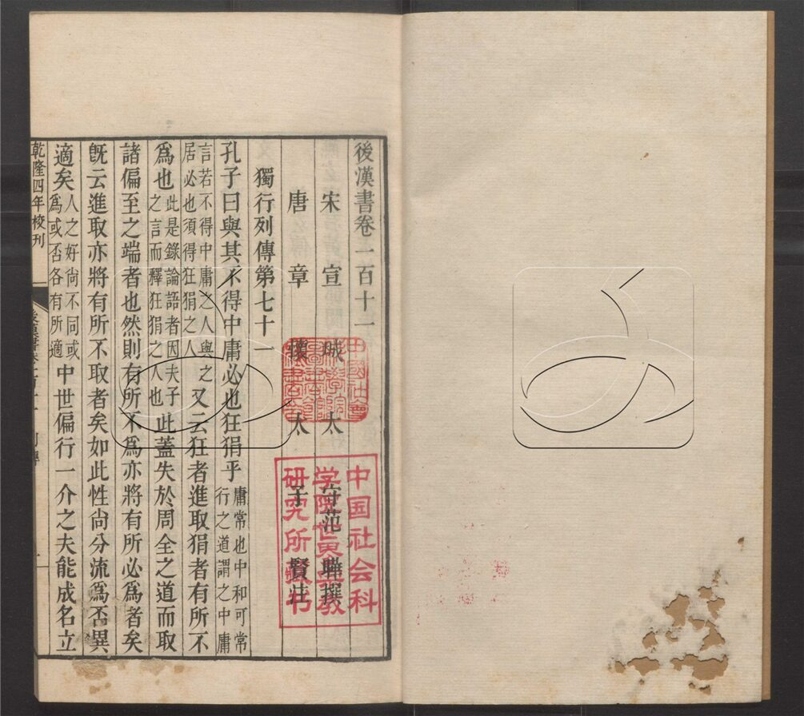 後漢書卷一百十一
宋宣城太守范曄撰
唐章懷太子賢註
獨行列傳第七十一
孔子曰與其不得中庸必也狂狷乎庸常也中和可常行之道謂之中庸
言若不得中庸之人與之居必也須得狂狷之人又云狂者進取狷者有所不
爲也此是錄論語者因夫子之言而釋狂狷之人也此蓋失於周全之道而取
諸偏至之端者也然則有所不爲亦將有所必爲者矣
既云進取亦將有所不取者矣如此性尚分流爲否異
適矣人之好尚不同或爲或否各有所適中世偏行一介之夫能成名立
乾隆四年校刊
中國社會
中国社会科
学院
研究所
书